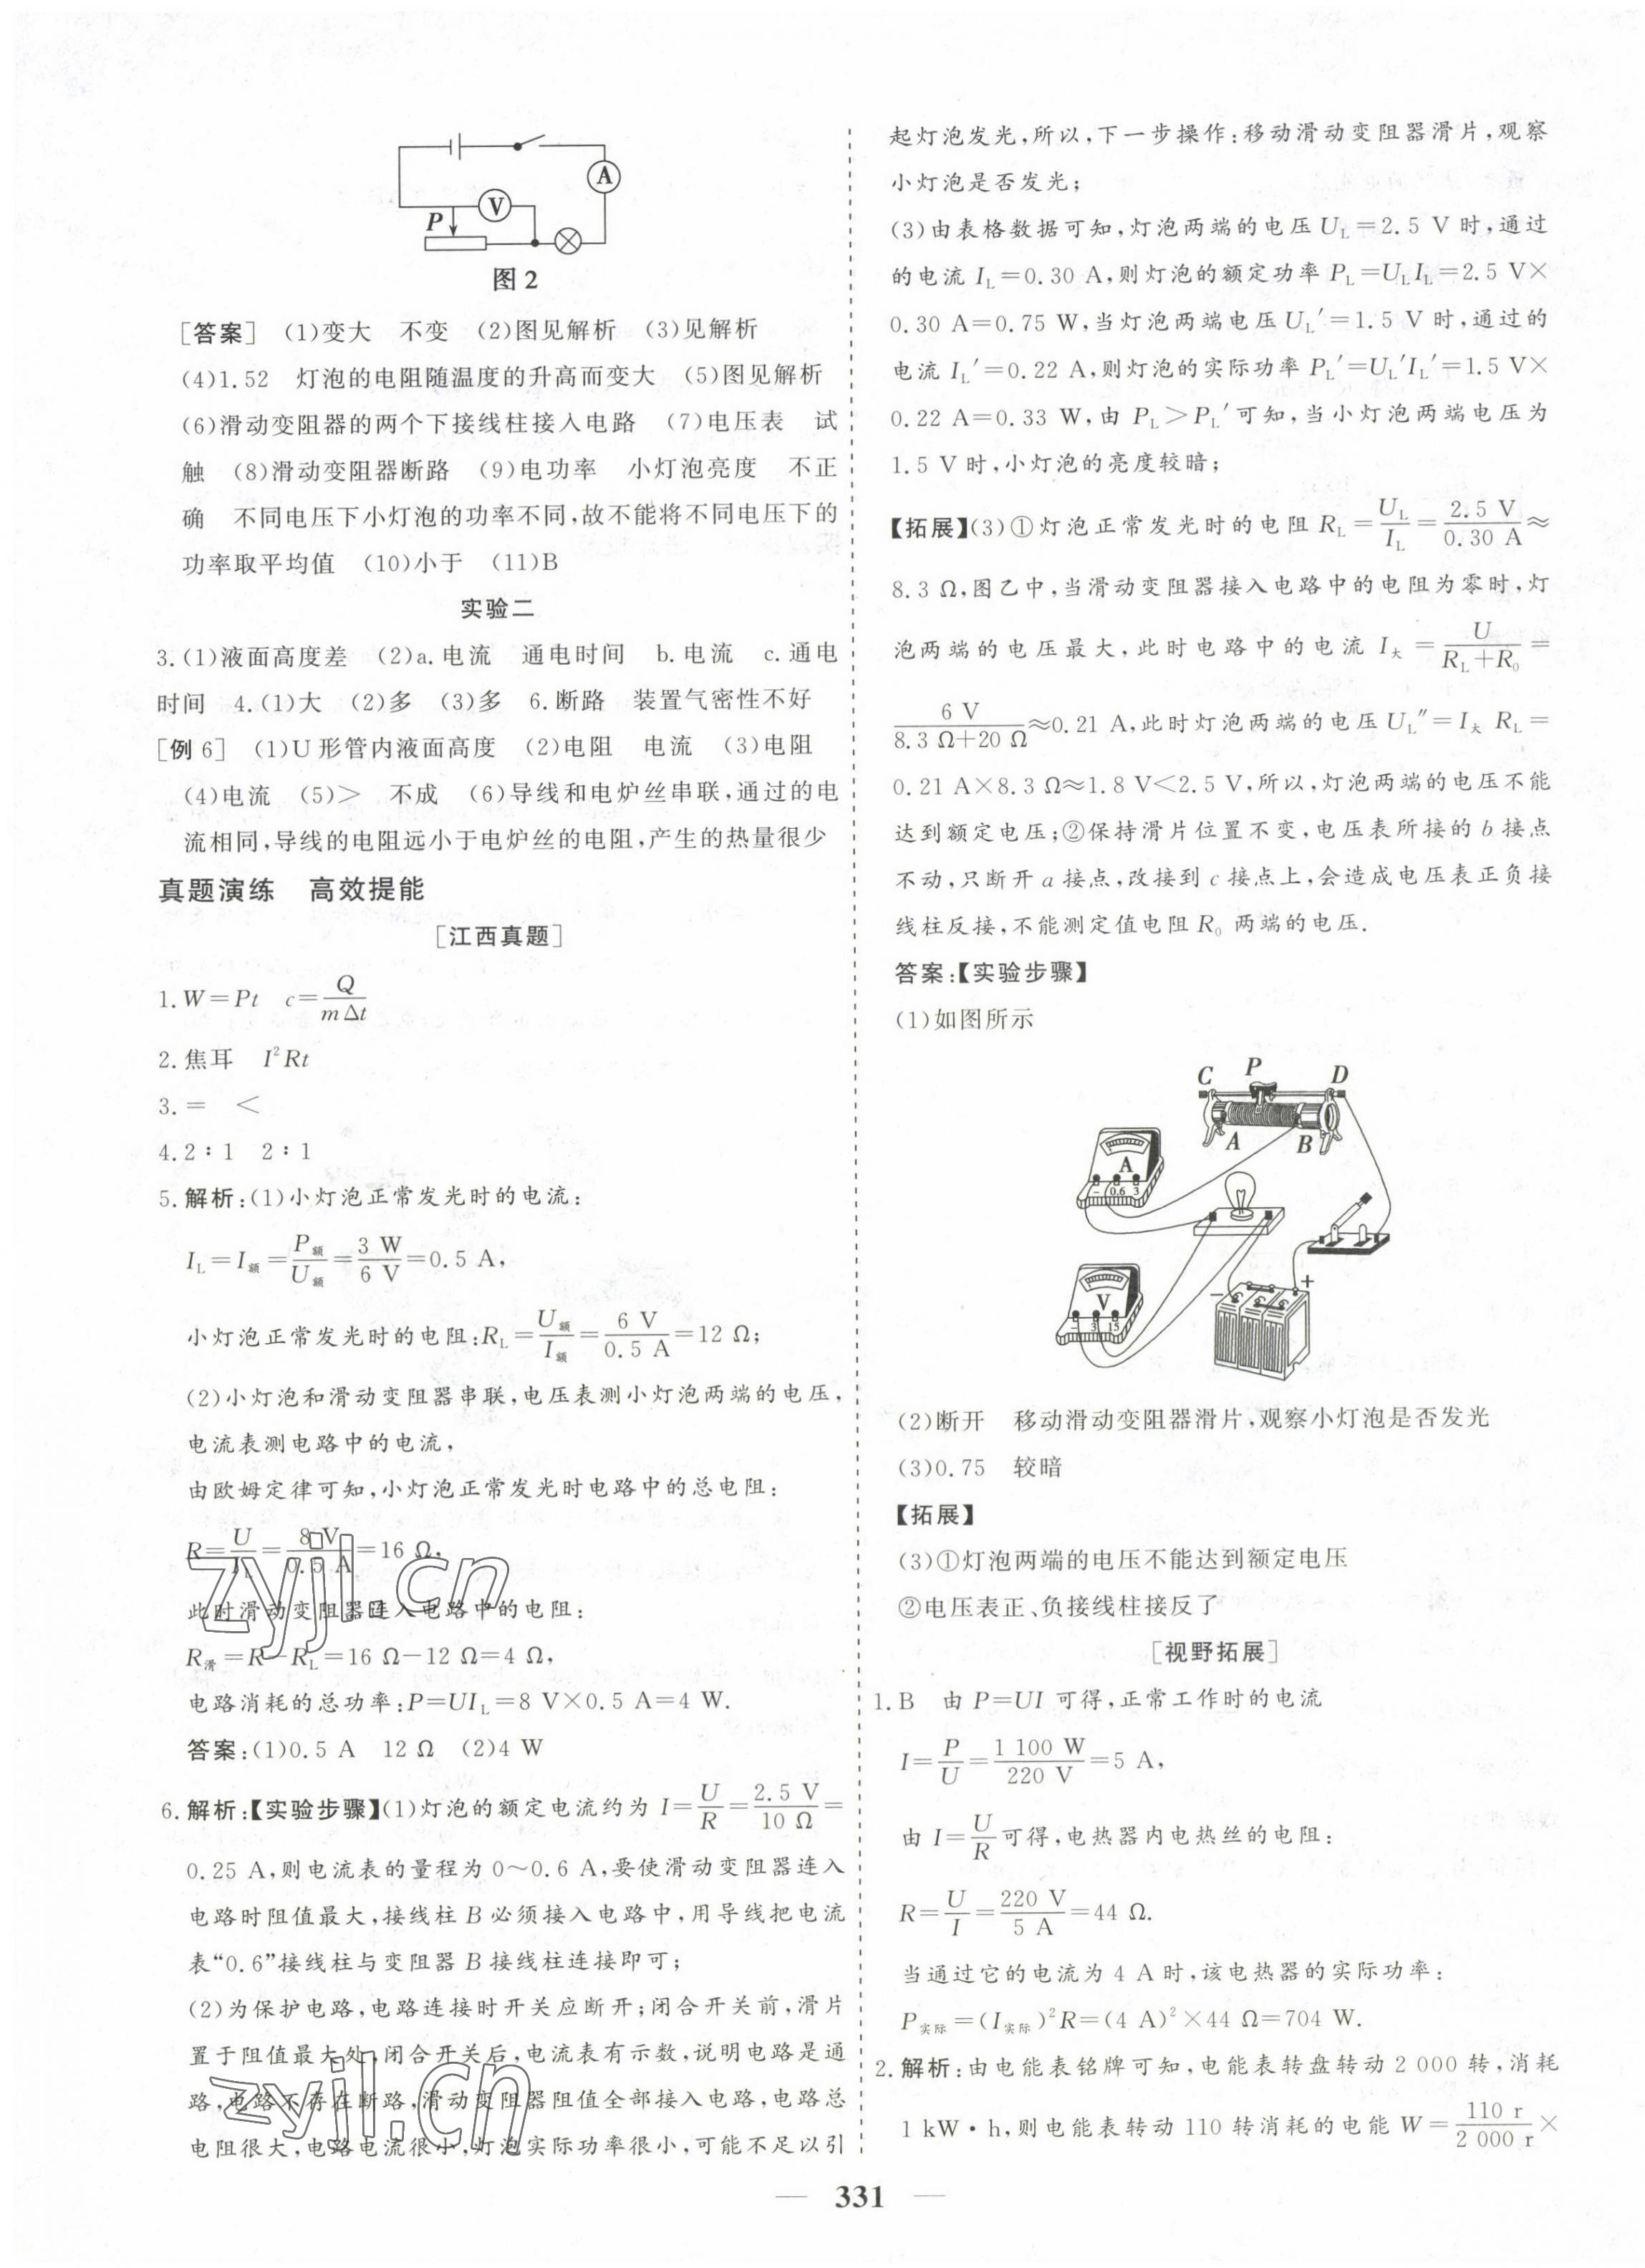 A
V
P
图 2
[答案] (1)变大 不变 (2)图见解析 (3)见解析
(4)1.52 灯泡的电阻随温度的升高而变大 (5)图见解析
(6)滑动变阻器的两个下接线柱接入电路 (7)电压表 试
触 (8)滑动变阻器断路 (9)电功率 小灯泡亮度 不正
确 不同电压下小灯泡的功率不同,故不能将不同电压下的
功率取平均值 (10)小于 (11)B
实验二
3.(1)液面高度差 (2)a.电流 通电时间 b.电流 c.通电
时间 4.(1)大 (2)多 (3)多 6.断路 装置气密性不好
[例 6] (1)U 形管内液面高度 (2)电阻 电流 (3)电阻
(4)电流 (5)> 不成 (6)导线和电炉丝串联,通过的电
流相同,导线的电阻远小于电炉丝的电阻,产生的热量很少
真题演练 高效提能
[江西真题]
1.W=Pt c=Q/(mΔt)
2.焦耳 I²Rt
3.= <
4.2∶1 2∶1
5.解析:(1)小灯泡正常发光时的电流:
I_L=I_额=P_额/U_额=3 W/6 V=0.5 A,
小灯泡正常发光时的电阻:R_L=U_额/I_额=6 V/0.5 A=12 Ω;
(2)小灯泡和滑动变阻器串联,电压表测小灯泡两端的电压,
电流表测电路中的电流,
由欧姆定律可知,小灯泡正常发光时电路中的总电阻:
R=U/I_L=8 V/0.5 A=16 Ω,
此时滑动变阻器连入电路中的电阻:
R_滑=R-R_L=16 Ω-12 Ω=4 Ω,
电路消耗的总功率:P=UI_L=8 V×0.5 A=4 W.
答案:(1)0.5 A 12 Ω (2)4 W
6.解析:【实验步骤】(1)灯泡的额定电流约为 I=U/R=2.5 V/10 Ω=
0.25 A,则电流表的量程为 0～0.6 A,要使滑动变阻器连入
电路时阻值最大,接线柱 B 必须接入电路中,用导线把电流
表“0.6”接线柱与变阻器 B 接线柱连接即可;
(2)为保护电路,电路连接时开关应断开;闭合开关前,滑片
置于阻值最大处,闭合开关后,电流表有示数,说明电路是通
路,电路不存在断路,滑动变阻器阻值全部接入电路,电路总
电阻很大,电路电流很小,灯泡实际功率很小,可能不足以引
起灯泡发光,所以,下一步操作:移动滑动变阻器滑片,观察
小灯泡是否发光;
(3)由表格数据可知,灯泡两端的电压 U_L=2.5 V 时,通过
的电流 I_L=0.30 A,则灯泡的额定功率 P_L=U_L I_L=2.5 V×
0.30 A=0.75 W,当灯泡两端电压 U_L′=1.5 V 时,通过的
电流 I_L′=0.22 A,则灯泡的实际功率 P_L′=U_L′I_L′=1.5 V×
0.22 A=0.33 W,由 P_L>P_L′可知,当小灯泡两端电压为
1.5 V 时,小灯泡的亮度较暗;
【拓展】(3)①灯泡正常发光时的电阻 R_L=U_L/I_L=2.5 V/0.30 A≈
8.3 Ω,图乙中,当滑动变阻器接入电路中的电阻为零时,灯
泡两端的电压最大,此时电路中的电流 I_大=U/(R_L+R_0)=
6 V/(8.3 Ω+20 Ω)≈0.21 A,此时灯泡两端的电压 U_L″=I_大 R_L=
0.21 A×8.3 Ω≈1.8 V<2.5 V,所以,灯泡两端的电压不能
达到额定电压;②保持滑片位置不变,电压表所接的 b 接点
不动,只断开 a 接点,改接到 c 接点上,会造成电压表正负接
线柱反接,不能测定值电阻 R_0 两端的电压.
答案:【实验步骤】
(1)如图所示
C P D
A B
A
- 0.6 3
V
- 3 15
- +
(2)断开 移动滑动变阻器滑片,观察小灯泡是否发光
(3)0.75 较暗
【拓展】
(3)①灯泡两端的电压不能达到额定电压
②电压表正、负接线柱接反了
[视野拓展]
1.B 由 P=UI 可得,正常工作时的电流
I=P/U=1 100 W/220 V=5 A,
由 I=U/R 可得,电热器内电热丝的电阻:
R=U/I=220 V/5 A=44 Ω.
当通过它的电流为 4 A 时,该电热器的实际功率:
P_实际=(I_实际)²R=(4 A)²×44 Ω=704 W.
2.解析:由电能表铭牌可知,电能表转盘转动 2 000 转,消耗
1 kW·h,则电能表转动 110 转消耗的电能 W=110 r/2 000 r×
zyjl.cn
zyjl.cn
— 331 —